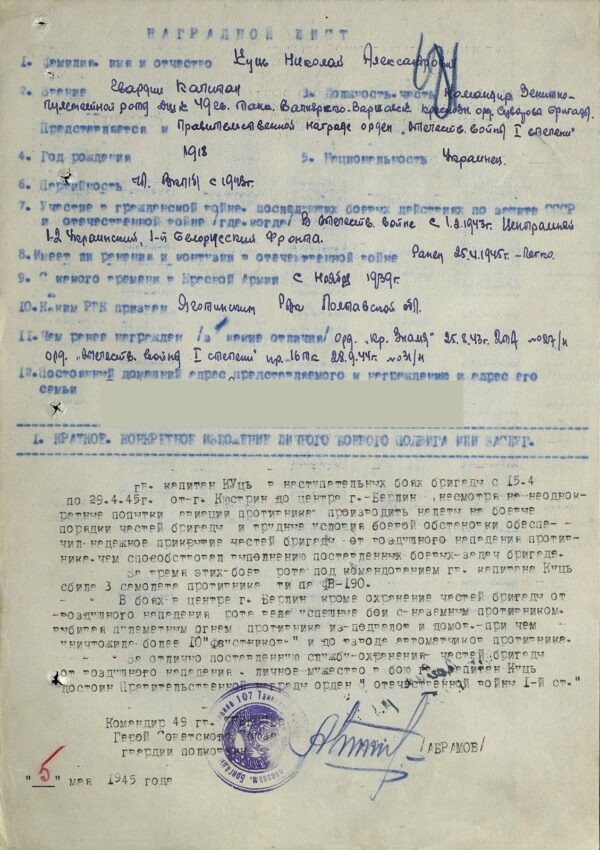 НАГРАДНОЙ ЛИСТ
1. Фамилия, имя и отчество Куць Николай Александрович
2. Звание Гвардии Капитан 3. Должность, часть Командир Зенитно-
Пулеметной роты 49 гв. Танк. Варшавск. ордена Суворова бригады.
Представляется к Правительственной награде орден „Отечеств. войны I степени"
4. Год рождения 1918 5. Национальность Украинец.
6. Партийность Чл. ВКП/б/ с 1943г.
7. Участие в гражданской войне, последующих боевых действиях по защите СССР
и отечественной войне /где, когда/ В Отечеств. войне с 1.2.1943г. Центральный
1-2 Украинский, 1-й Белорусский Фронта.
8. Имеет ли ранения и контузии в отечественной войне Ранен 25.4.1945г. - Легко.
9. С какого времени в Красной Армии с Ноября 1939г.
10. Каким РВК призван Яготинским РВК Полтавской обл.
11. Чем ранее награжден /за какие отличия/ орд. „Кр. Знамя" 25.8.43г. 2ТА №27/н
орд. „Отечеств. войны I степени" пр. 16ТК 28.9.44г. №31/н
12. Постоянный домашний адрес представляемого к награждению и адрес его
семьи
1. КРАТКОЕ, КОНКРЕТНОЕ ИЗЛОЖЕНИЕ ЛИЧНОГО БОЕВОГО ПОДВИГА ИЛИ ЗАСЛУГ.
гв. капитан КУЦЬ в наступательных боях бригады с 15.4
по 29.4.45г. от г. Кюстрин до центра г. Берлин, несмотря на неоднок-
ратные попытки авиации противника производить налеты на боевые
порядки частей бригады и трудные условия боевой обстановки обеспе-
чил надежное прикрытие частей бригады от воздушного нападения против-
ника, чем способствовал выполнению поставленных боевых задач бригаде.
За время этих боев рота под командованием гв. капитана Куць
сбила 3 самолета противника типа ФВ-190.
В боях в центре г. Берлин кроме охранение частей бригады от
воздушного нападения рота вела успешные бои с наземным противником,
выбивая пулеметным огнем противника из подвалов и домов, при чем
уничтожила более 10 "фаустников" и до взвода автоматчиков противника.
За отлично поставленную службу охранения частей бригады
от воздушного нападения, личное мужество в бою гв. капитан Куць
достоин Правительственной награды орден " отечественной войны I-й ст."
Командир 49 гв.
Герой Советского Союза
гвардии полковник /АБРАМОВ/
"5" мая 1945 года